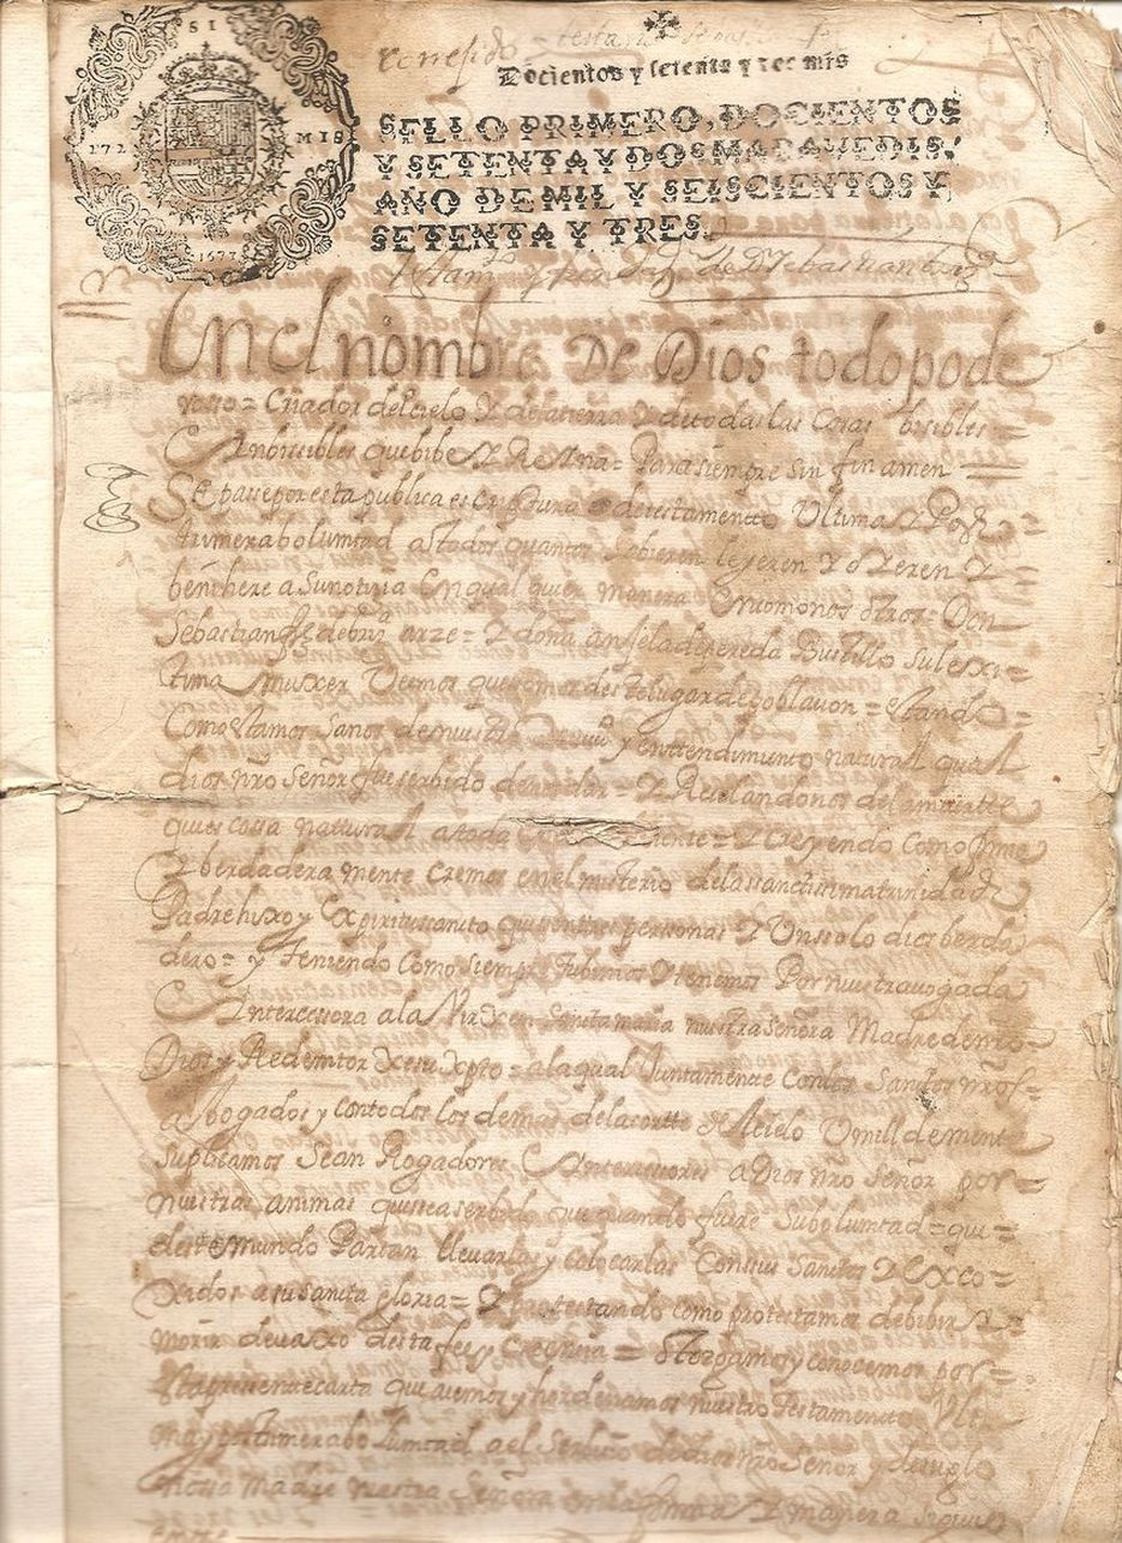 272 MIS
1673
Docientos y setenta y dos mrs
SELLO PRIMERO, DOCIENTOS
Y SETENTA Y DOS MARAVEDIS,
AÑO DE MIL Y SEISCIENTOS Y
SETENTA Y TRES.
En el nombre De Dios todo pode
roso = Criador del cielo Y de la tierra Y de todas las Cosas bisibles =
E Inbisibles que bibe Y Reyna = Para siempre sin fin amen
Sepasse por esta publica escriptura de testamento Ultima Y Pos
trimera boluntad a todos quantos bieren leyeren Y oyeren Y
benihere a su notiçia En qual quier manera Como nos otros = Don
Sebastian arze = Y doña anjela de pereda Bustillo su lexi =
tima Muxer Veçinos que somos deste lugar de poblaçion = estando =
Como estamos sanos de nuestro y entendimiento natural qual
dios nro Señor fue serbido de nos dar = Y Reçelandonos de la muerte
que es cosa natural a toda = Y Creyendo Como firme
Y berdadera mente Cremos en el misterio de la sanctisima trinidad
Padre hixo y Expiritu santo que son tres personas Y Un solo dios berda
dero = y Teniendo Como siempre Tubimos Y tenemos Por nuestra avogada
E Intercessora a la Virxen santa maria nuestra señora Madre de nro
Dios y Redemtor Xesu Xpto = a la qual Juntamente Con los Santos nros =
abogados y con todos los demas de la cortte del Cielo Umilldemente
Suplicamos Sean Rogadores E Intercesores a Dios nro Señor por =
nuestras animas que sea serbido que quando fuere Su boluntad = que =
deste Mundo Partan llevarlas y colocarlas Con sus Santos Y Exco =
xidos a su santa gloria = Y protestando como protestamos de bibir Y =
morir devaxo desta fee y Creençia = otorgamos y conocemos por =
esta presente carta que açemos y hordenamos nuestro Testamento Ulti
ma y postrimera boluntad a el Serbiçio de dios nro Señor y de su glo
riosa madre nuestra Señora en la forma Y manera siguie